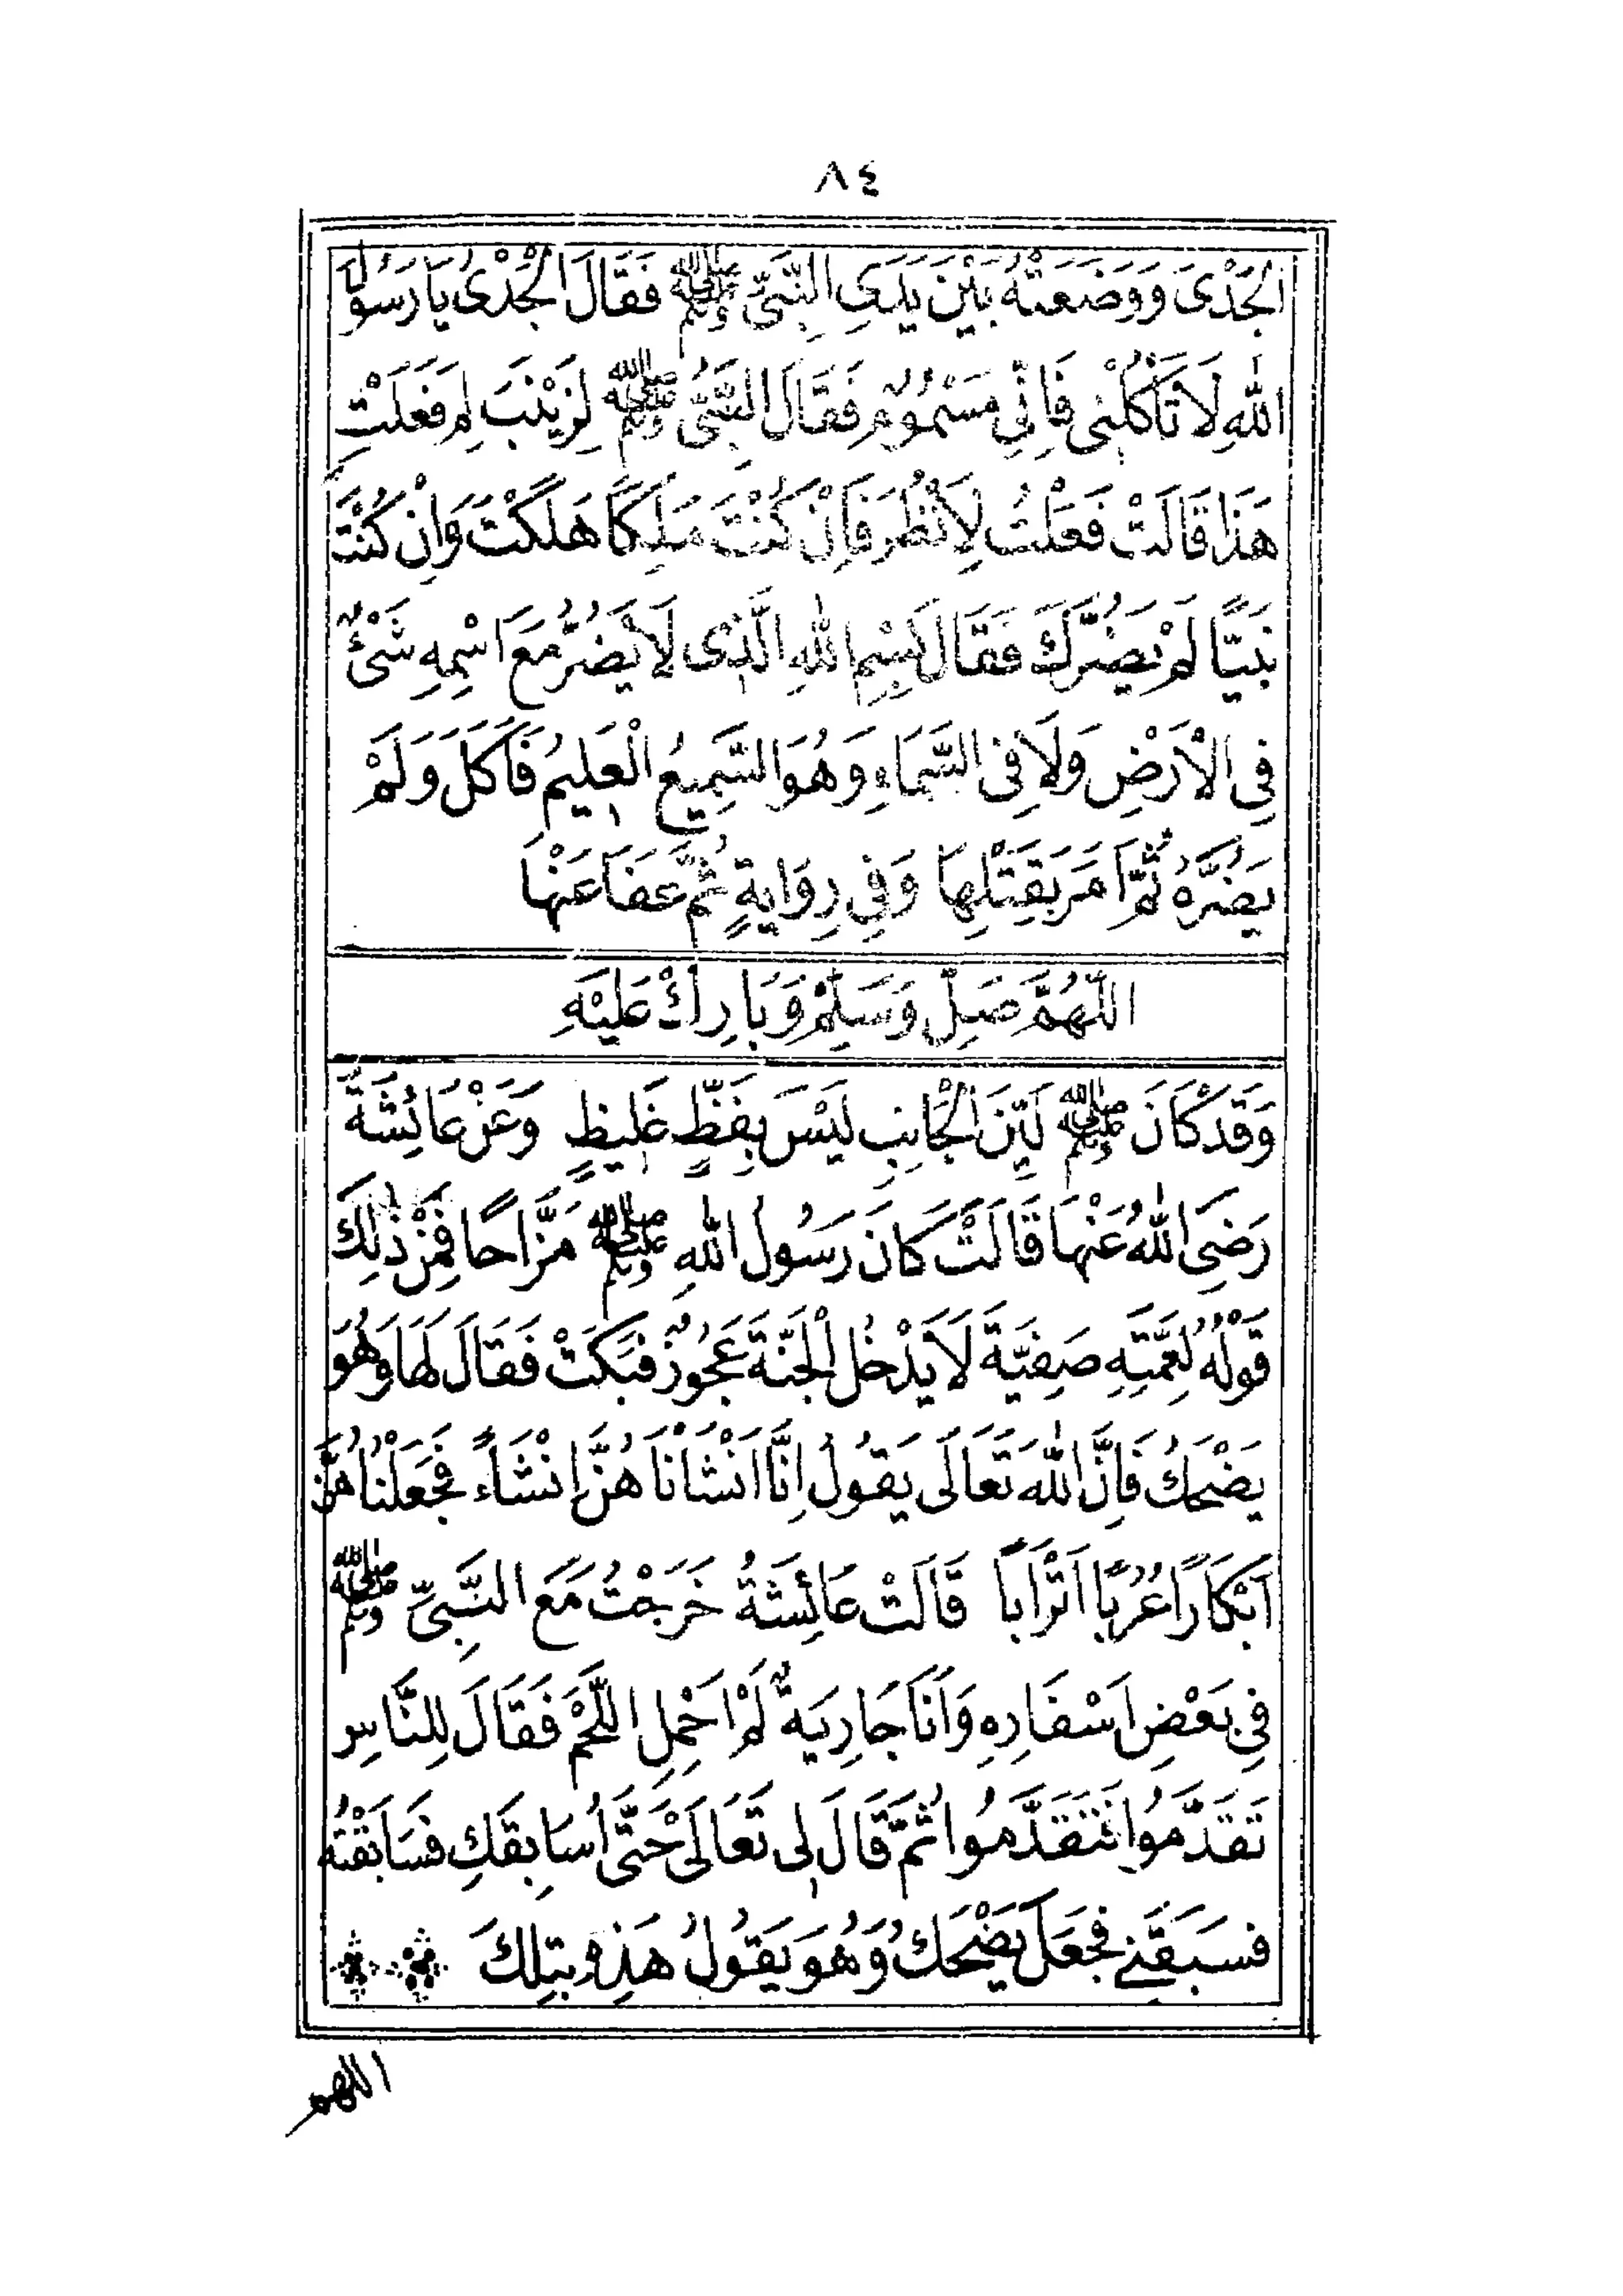 ٨٤
الْجَدْىَ وَوَضَعَتْهُ بَيْنَ يَدَىِ النَّبِىِّ ﷺ فَقَالَ الْجَدْىُ يَا رَسُولَ
اللّٰهِ لَا تَأْكُلْنِى فَاِنِّي مَسْمُومٌ فَقَالَ النَّبِىُّ ﷺ لِزَيْنَبَ لِمَ فَعَلْتِ
هَذَا قَالَتْ فَعَلْتُ لِاَنْظُرَ فَاِنْ كُنْتَ مَلِكًا هَلَكْتَ وَاِنْ كُنْتَ
نَبِيًّا لَمْ يَضُرَّكَ فَقَالَ بِسْمِ اللّٰهِ الَّذِى لَا يَضُرُّ مَعَ اسْمِهِ شَىْءٌ
فِى الْاَرْضِ وَلَا فِى السَّمَاءِ وَهُوَ السَّمِيعُ الْعَلِيمُ فَاَكَلَ وَلَمْ
يَضُرَّهُ ثُمَّ اَمَرَ بِقَتْلِهَا وَفِى رِوَايَةٍ ثُمَّ عَفَا عَنْهَا
اللّٰهُمَّ صَلِّ وَسَلِّمْ وَبَارِكْ عَلَيْهِ
وَقَدْ كَانَ ﷺ لَيِّنَ الْجَانِبِ لَيْسَ بِفَظٍّ غَلِيظٍ وَعَنْ عَائِشَةَ
رَضِىَ اللّٰهُ عَنْهَا قَالَتْ كَانَ رَسُولُ اللّٰهِ ﷺ مَزَّاحًا فَمِنْ ذٰلِكَ
قَوْلُهُ لِعَمَّتِهِ صَفِيَّةَ لَا يَدْخُلُ الْجَنَّةَ عَجُوزٌ فَبَكَتْ فَقَالَ لَهَا وَهُوَ
يَضْحَكُ فَاِنَّ اللّٰهَ تَعَالَى يَقُولُ اِنَّا اَنْشَأْنَاهُنَّ اِنْشَاءً فَجَعَلْنَاهُنَّ
اَبْكَارًا عُرُبًا اَتْرَابًا قَالَتْ عَائِشَةُ خَرَجْتُ مَعَ النَّبِىِّ ﷺ
فِى بَعْضِ اَسْفَارِهِ وَاَنَا جَارِيَةٌ لَمْ اَحْمِلِ اللَّحْمَ فَقَالَ لِلنَّاسِ
تَقَدَّمُوا فَتَقَدَّمُوا ثُمَّ قَالَ لِى تَعَالَىْ حَتَّى اُسَابِقَكِ فَسَابَقْتُهُ
فَسَبَقَنِى فَجَعَلَ يَضْحَكُ وَهُوَ يَقُولُ هَذِهِ بِتِلْكَ
اللهم